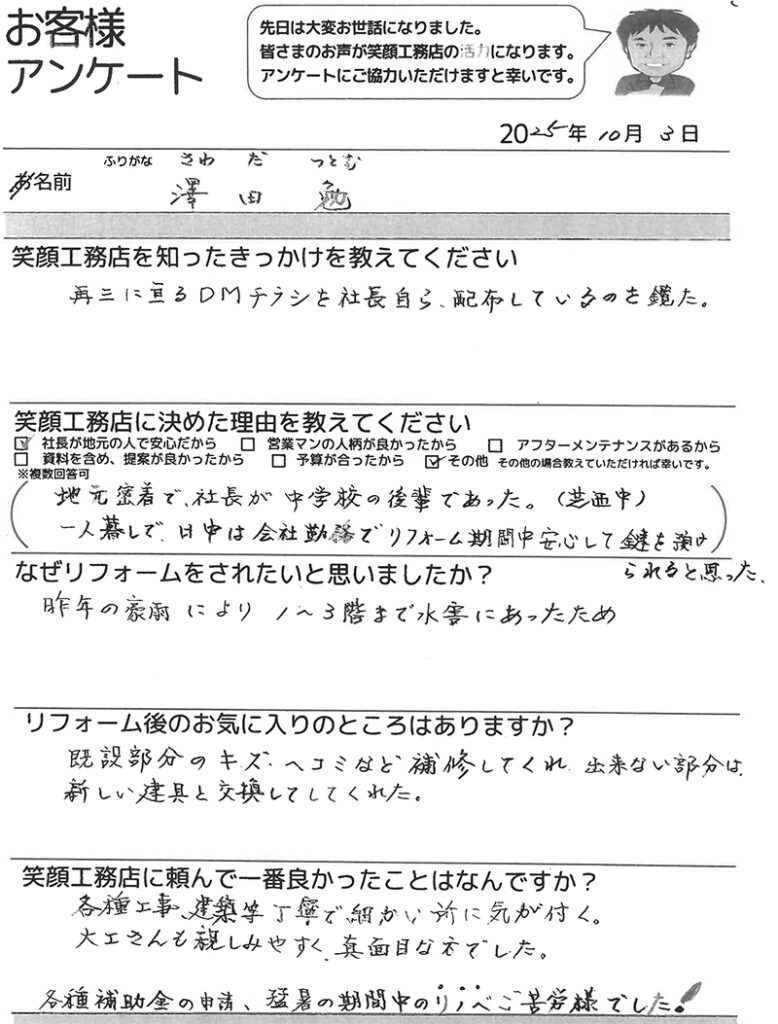 お客様
アンケート
先日は大変お世話になりました。
皆さまのお声が笑顔工務店の活力になります。
アンケートにご協力いただけますと幸いです。
2025年 10月 3日
ふりがな さわ だ つとむ
お名前 澤 田 勉
笑顔工務店を知ったきっかけを教えてください
再三に亘るDMチラシを社長自ら、配布しているのを鑑た。
笑顔工務店に決めた理由を教えてください
☑ 社長が地元の人で安心だから □ 営業マンの人柄が良かったから □ アフターメンテナンスがあるから
□ 資料を含め、提案が良かったから □ 予算が合ったから ☑ その他 その他の場合教えていただければ幸いです。
※複数回答可
(地元密着で、社長が中学校の後輩であった。(芝西中)
一人暮しで、日中は会社勤務でリフォーム期間中安心して鍵を預け)
られると思った、
なぜリフォームをされたいと思いましたか?
昨年の豪雨により 1〜3階まで水害にあったため
リフォーム後のお気に入りのところはありますか?
既設部分のキズ、ヘコミなど補修してくれ、出来ない部分は
新しい建具と交換してしてくれた。
笑顔工務店に頼んで一番良かったことはなんですか?
各種工事、建築等丁寧で細かい所に気が付く。
大工さんも親しみやすく、真面目な方でした。
各種補助金の申請、猛暑の期間中のリノベご苦労様でした!